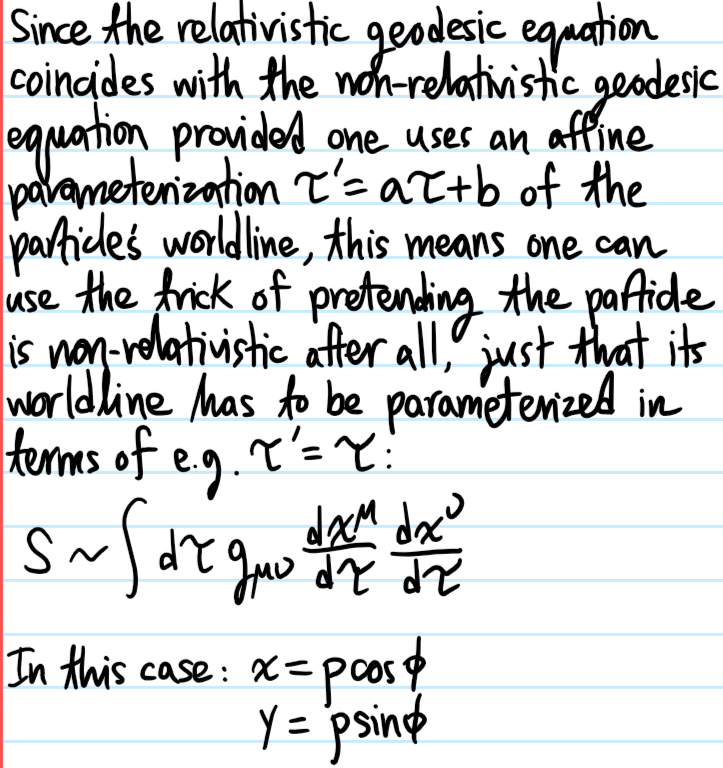 Since the relativistic geodesic equation
coincides with the non-relativistic geodesic
equation provided one uses an affine
parameterization τ'= aτ+b of the
particle's worldline, this means one can
use the trick of pretending the particle
is non-relativistic after all, just that its
worldline has to be parameterized in
terms of e.g. τ'= τ:
S ~ ∫ dτ g_{μν} dx^μ/dτ dx^ν/dτ
In this case: x = ρcosϕ
y = ρsinϕ